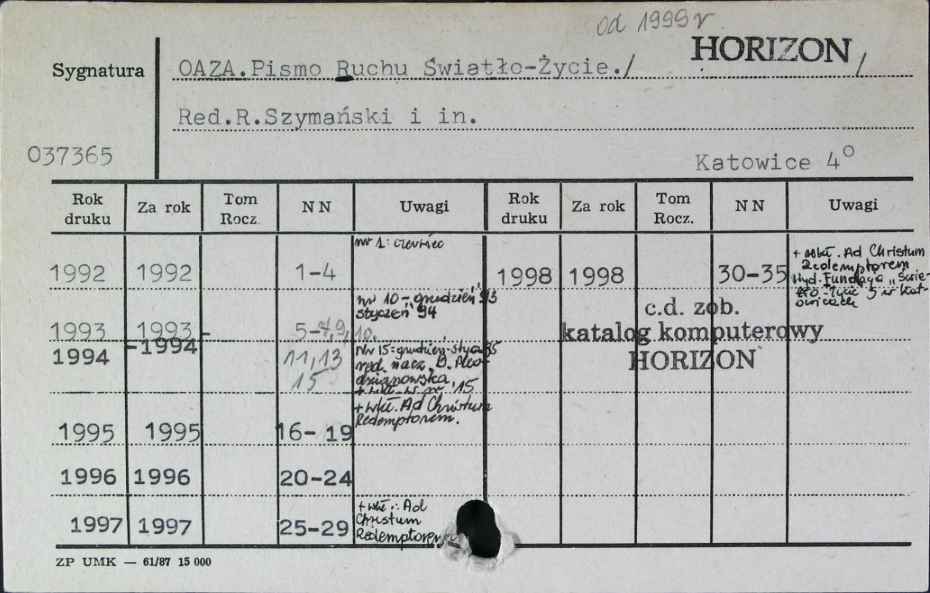 od 1999 r
HORIZON /
Sygnatura
OAZA.Pismo Ruchu Światło-Życie./
Red.R.Szymański i in.
037365
Katowice 4°
Rok druku Za rok Tom Rocz. NN Uwagi Rok druku Za rok Tom Rocz. NN Uwagi
nr 1: czerwiec
1992 1992 1-4
1998 1998 30-35
+ wkł. Ad Christum
Redemptorem
wyd. Fundacja "Świa-
tło-Życie" w Kat-
owicach
nr 10 - "grudzień 93
styczeń" 94
1993 1993- 5-7,9,10,
c.d. zob.
katalog komputerowy
HORIZON
1994 -1994 11,13
15
Nr 15: grudzień-stycz. 95
red. nacz. D.
+ wkł. w nr 15
+ wkł. Ad Christum
Redemptorem.
1995 1995 16-19
1996 1996 20-24
1997 1997 25-29
+ wkł.: Ad
Christum
Redemptorem
ZP UMK — 61/87 15 000